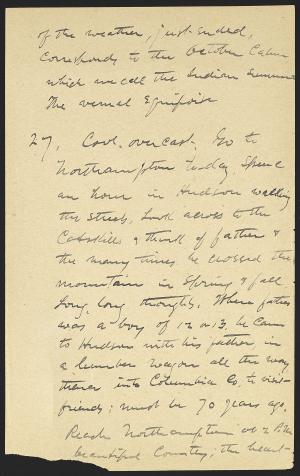 of the weather, just ended,
corresponds to the October calm
which we call the Indian summer
The vernal Equipoise
27, Cool, overcast. Go to
Northampton to-day. Spend
an hour in Hudson walking
the streets. Look across to the
Catskills & think of father &
the many times he crossed the
mountain in Spring & fall.
Long, long thoughts. When father
was a boy of 12 or 13, he came
to Hudson with his father, in
a lumber wagon all the way,
thence into Columbia Co. to visit
friends; must be 70 years ago.
Reach Northampton at 2 P.M.
beautiful Country; the heart-